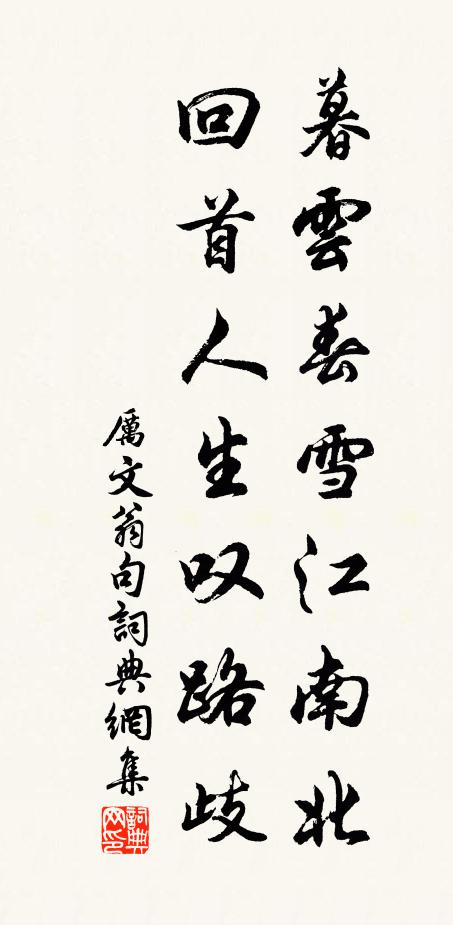 暮雲春雪江南北
回首人生叹路歧
厲文翁句詞典網集
詞典网印